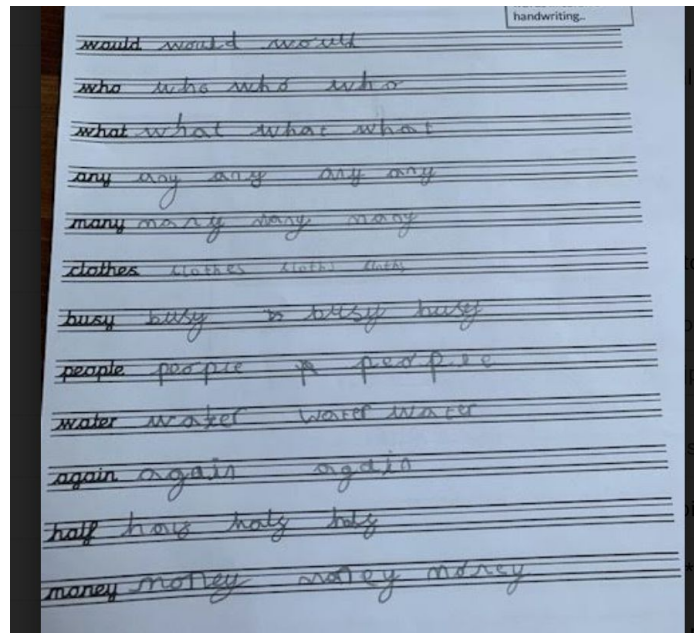 handwriting..
would would would would
who who who who
what what what what
any any any any any
many many many many
clothes clothes cloths cloths
busy busy b busy busy
people people p people
water water water water
again again again
half
money money money money